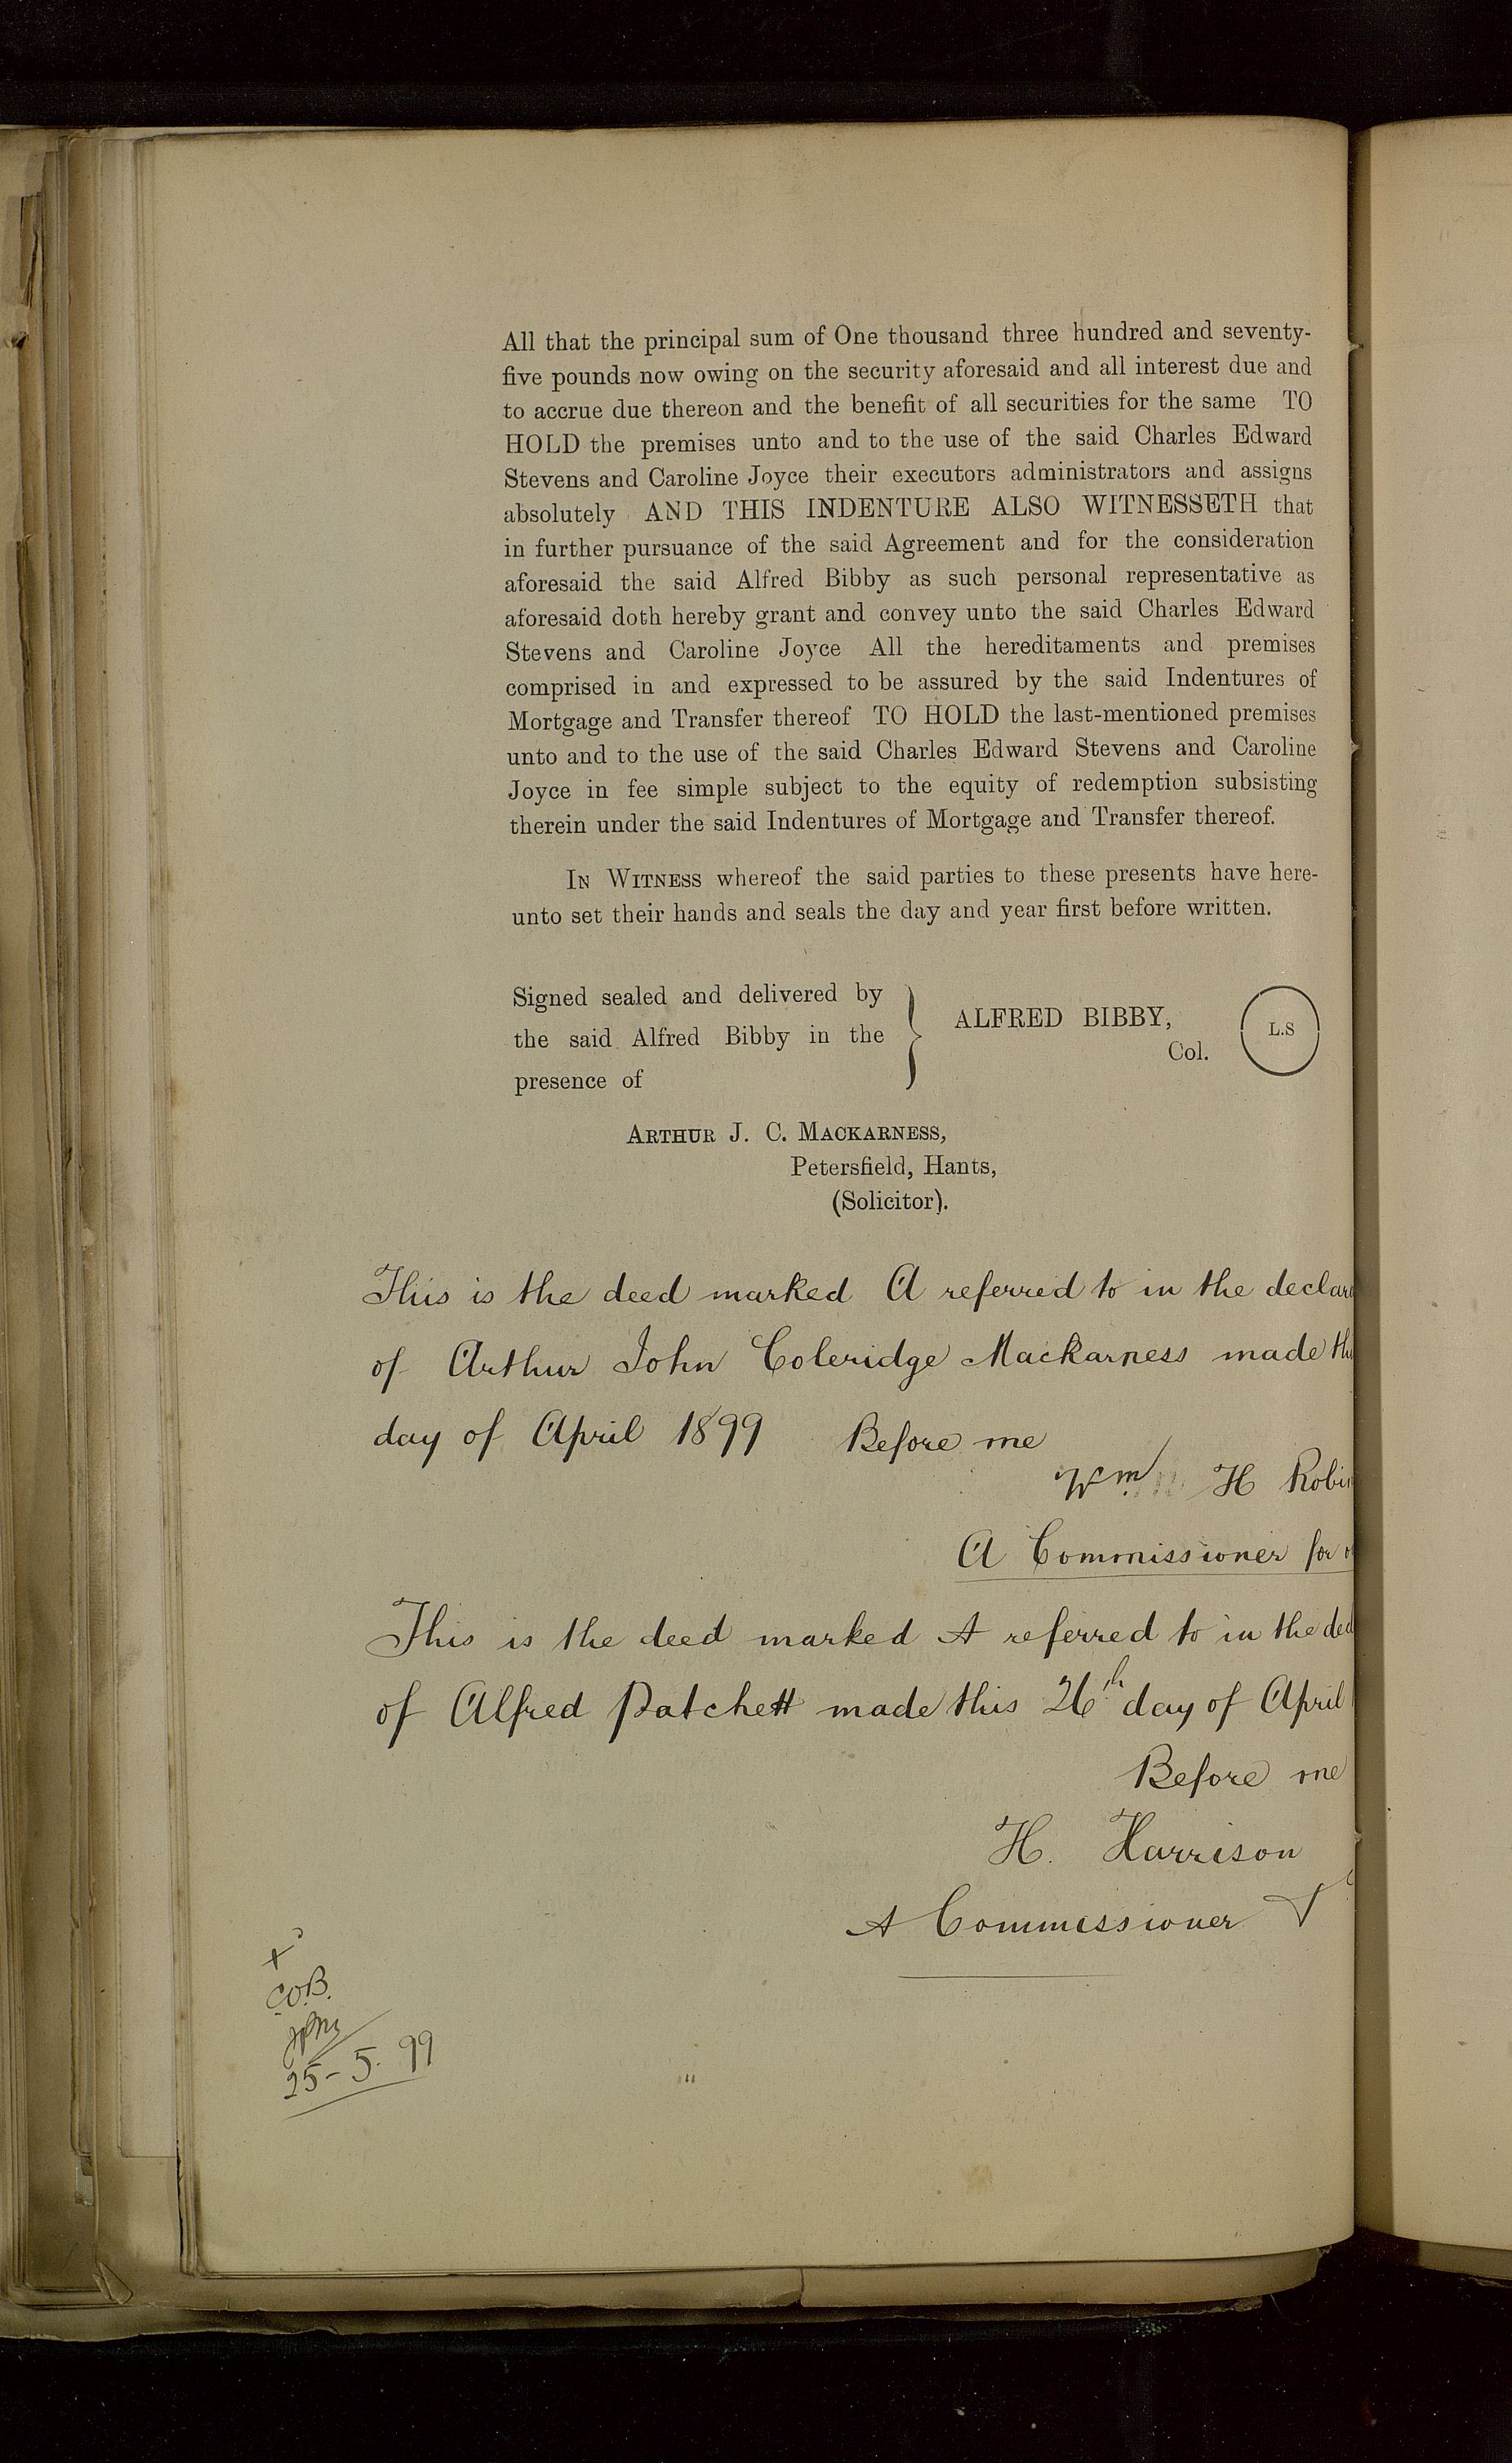 All that the principal sum of One thousand three hundred and seventy-
five pounds now owing on the security aforesaid and all interest due and
to accrue due thereon and the benefit of all securities for the same TO
HOLD the premises unto and to the use of the said Charles Edward
Stevens and Caroline Joyce their executors administrators and assigns
absolutely AND THIS INDENTURE ALSO WITNESSETH that
in further pursuance of the said Agreement and for the consideration
aforesaid the said Alfred Bibby as such personal representative as
aforesaid doth hereby grant and convey unto the said Charles Edward
Stevens and Caroline Joyce All the hereditaments and premises
comprised in and expressed to be assured by the said Indentures of
Mortgage and Transfer thereof TO HOLD the last-mentioned premises
unto and to the use of the said Charles Edward Stevens and Caroline
Joyce in fee simple subject to the equity of redemption subsisting
therein under the said Indentures of Mortgage and Transfer thereof.
IN WITNESS whereof the said parties to these presents have here-
unto set their hands and seals the day and year first before written.
Signed sealed and delivered by
the said Alfred Bibby in the
presence of
ALFRED BIBBY,
Col.
L.S
ARTHUR J. C. MACKARNESS,
Petersfield, Hants,
(Solicitor).
This is the deed marked A referred to in the
of Arthur John Coleridge Mackarness made
day of April 1899 Before me
Wm H
A Commissioner for
This is the deed marked A referred to in the
of Alfred Patchett made this 26th day of April
Before me
H. Harrison
A Commissioner
C.O.B.
25-5.99